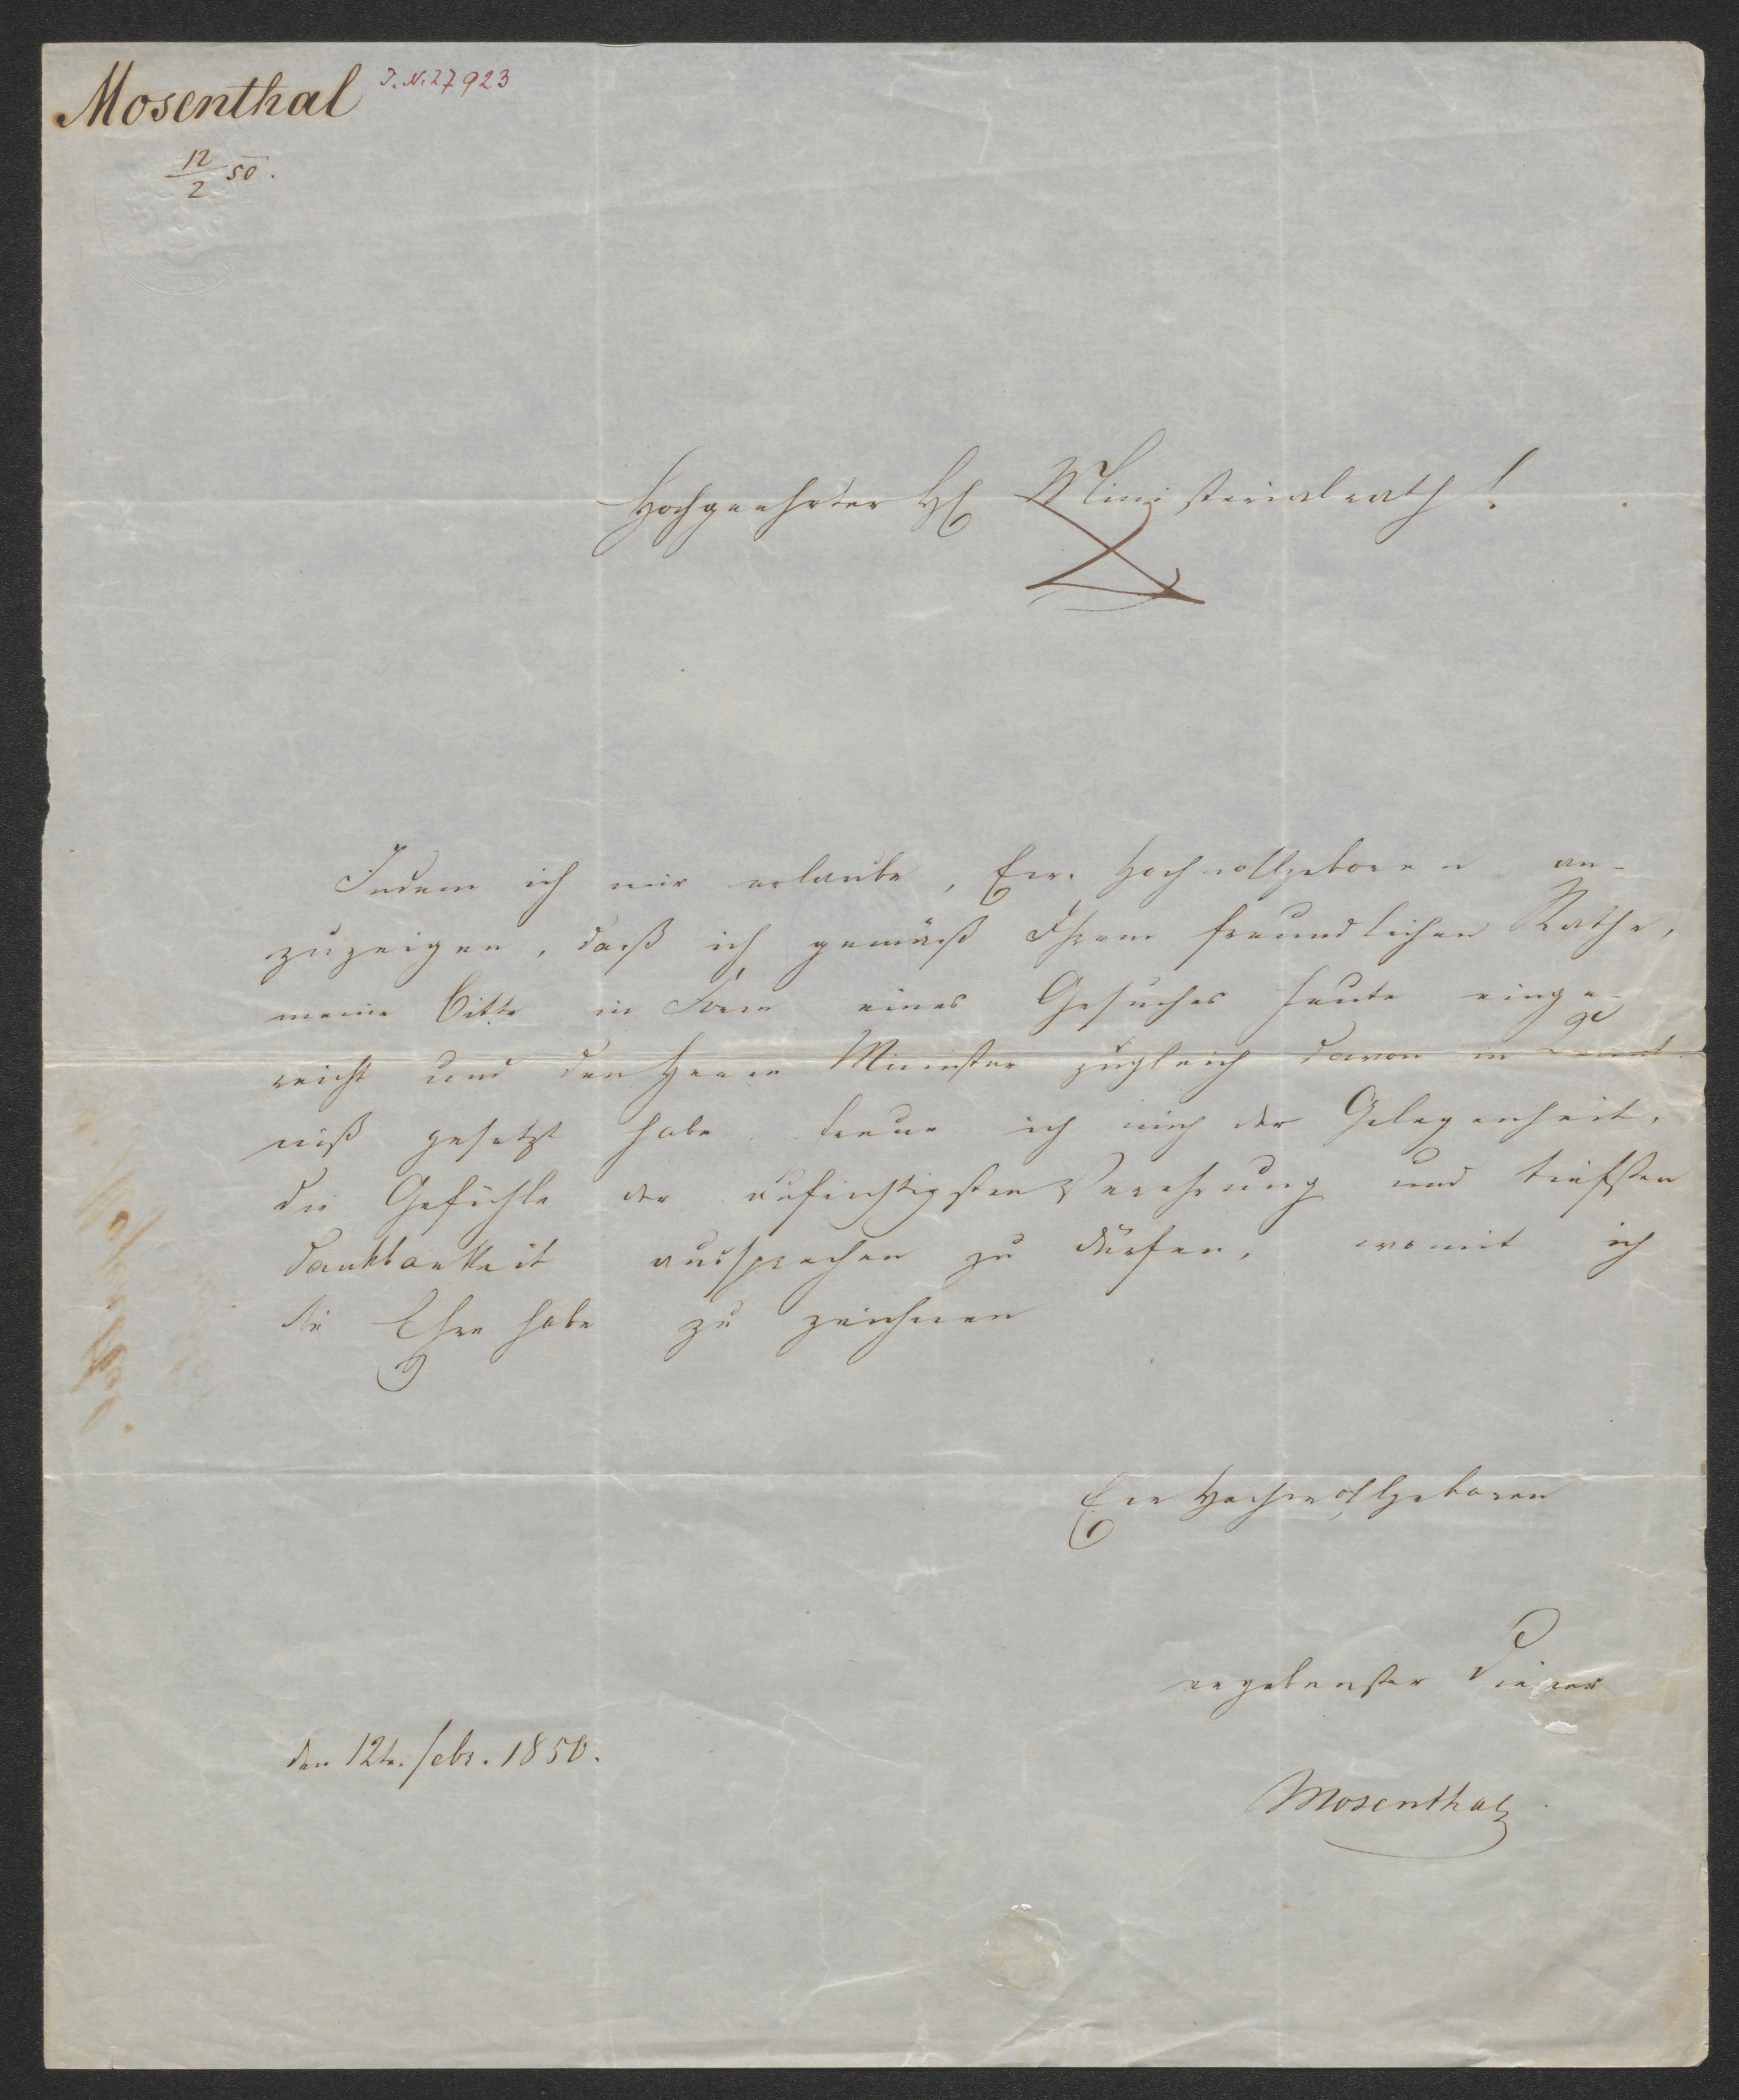 Mosenthal J. N. 27923
12/2 50.
Hochgeehrter H Ministerialrath!
Indem ich mir erlaube, Eur. Hochwollgeboren an-
zuzeigen, daß ich gemäß Ihrem freundlichen Rathe,
meine Bitte in Form eines Gesuches heute einge-
reicht und den Herrn Minister zugleich davon in Kennt-
niß gesetzt habe freue ich mich der Gelegenheit,
die Gefühle der aufrichtigsten Verehrung und tiefsten
Dankbarkeit aussprechen zu dürfen, womit ich
die Ehre habe zu zeichnen
Eur Hochwollgeboren
ergebenster Diener
den 12t. Febr. 1850.
Mosenthal